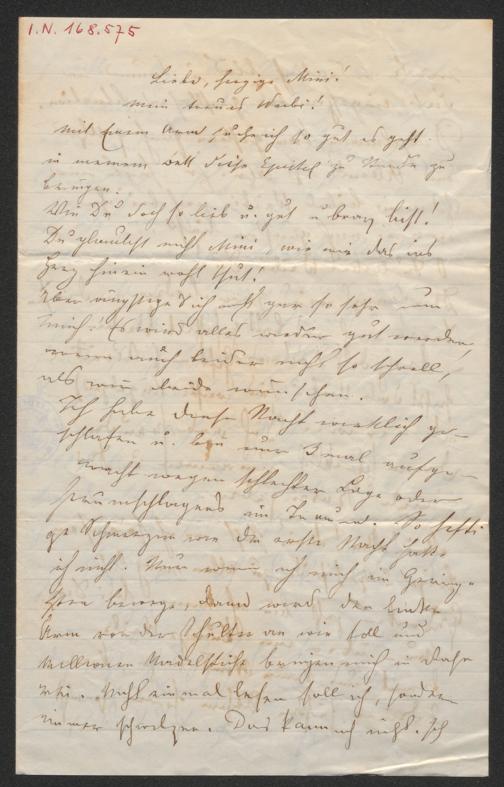 I.N. 168.575
Liebe, herzige Mini!
mein treues Weibi!
mit Einem Arm suche ich so gut es geht
in meinem Bett diese Epistel zu Stande zu
bringen.
Wie Du doch so lieb u. gut u brav bist!
Du glaubst nicht Mini, wie mir das ins
Herz hinein wohl thut!
Aber ängstige Dich nicht gar so sehr um
mich! Es wird alles wieder gut werden,
wenn auch leider nicht so schnell,
als wir beide wünschen.
Ich habe diese Nacht wirklich ge-
schlafen u. bin nur 3 mal aufge-
wacht wegen schlechter Lage oder
im Traum. So hefti
ge Schmerzen wie die erste Nacht hatte
ich nicht. Nur wenn ich mich im Gering-
sten bewege, dann wird der linke
Arm von der Schulter an wie toll und
Millionen Nadelstiche bringen mich in
Nicht einmal lesen soll ich, sondern
immer schwitzen. Das kann ich nicht. Ich